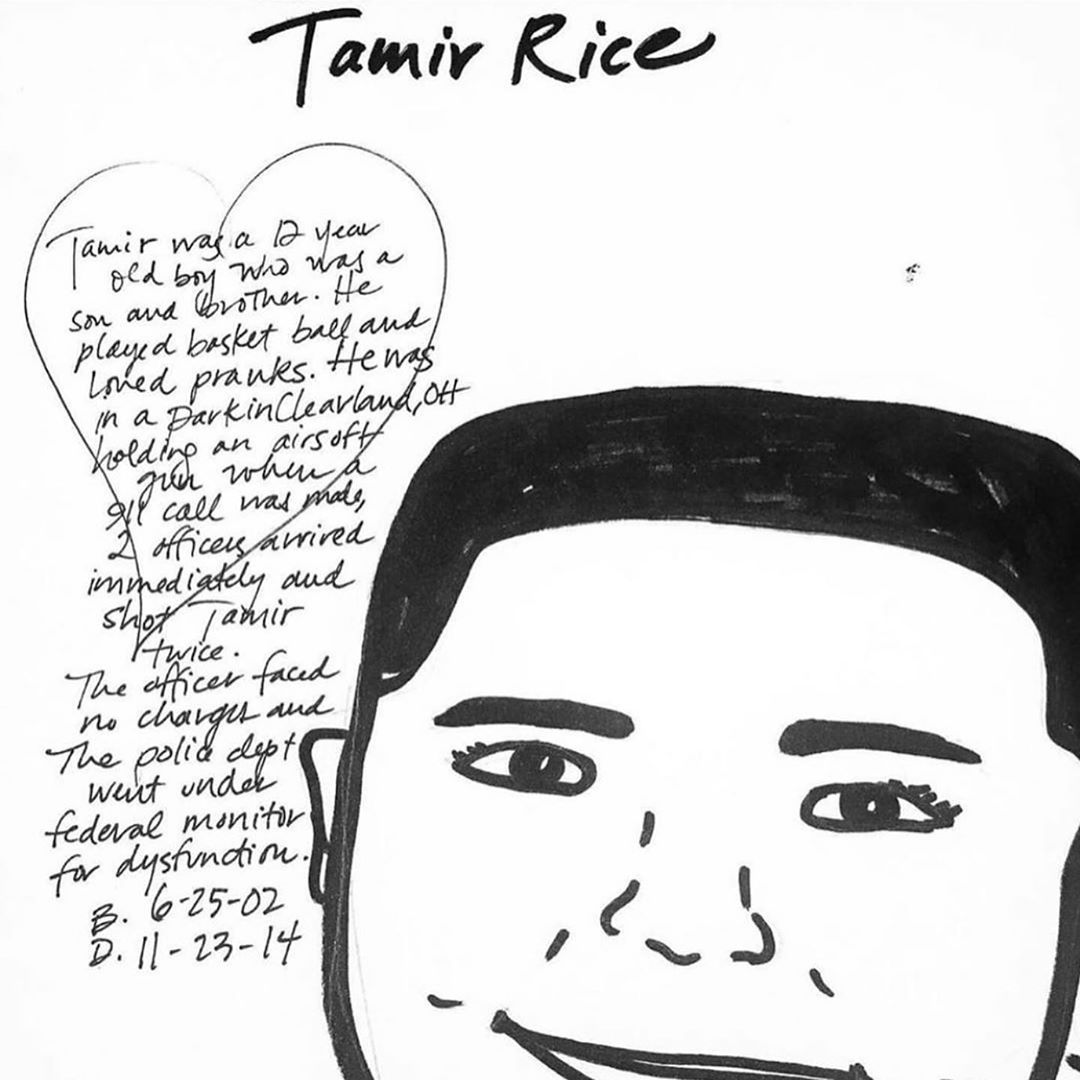 Tamir Rice
Tamir was a 12 year
old boy who was a
son and brother. He
played basket ball and
loved pranks. He was
in a park in Clearland, OH
holding an airsoft
gun when a
911 call was made,
2 officers arrived
immediately and
shot Tamir
twice.
The officer faced
no charges and
The police dept
went under
federal monitor
for dysfunction.
B. 6-25-02
D. 11-23-14